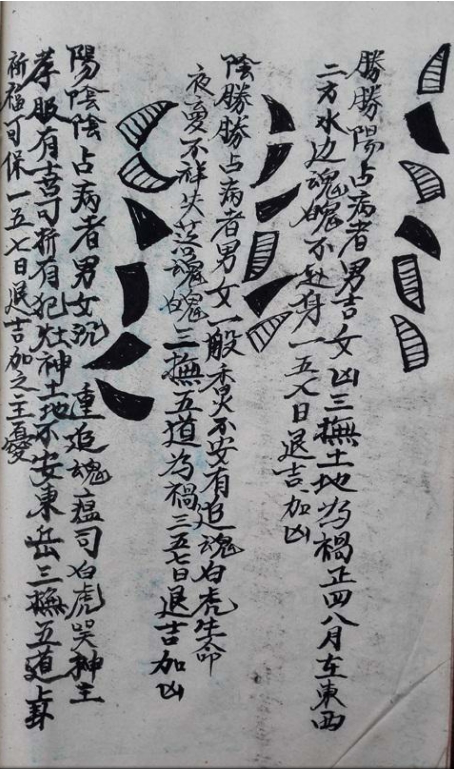 勝勝陽占病者男吉女凶三撫土地為禍正四八月左東西
二方水边魂魄不赴身一五七日退吉加凶
陰勝勝占病者男女一般香火不安有追魂白虎生命
夜夢不祥失落魂魄三撫五道為禍三五七日退吉加凶
陽陰陰占病者男女沉重追魂瘟司白虎哭神主
孝服有喜可折有犯灶神土地不安東岳三撫五道上卦
祈福可保一五七日退吉加之主憂